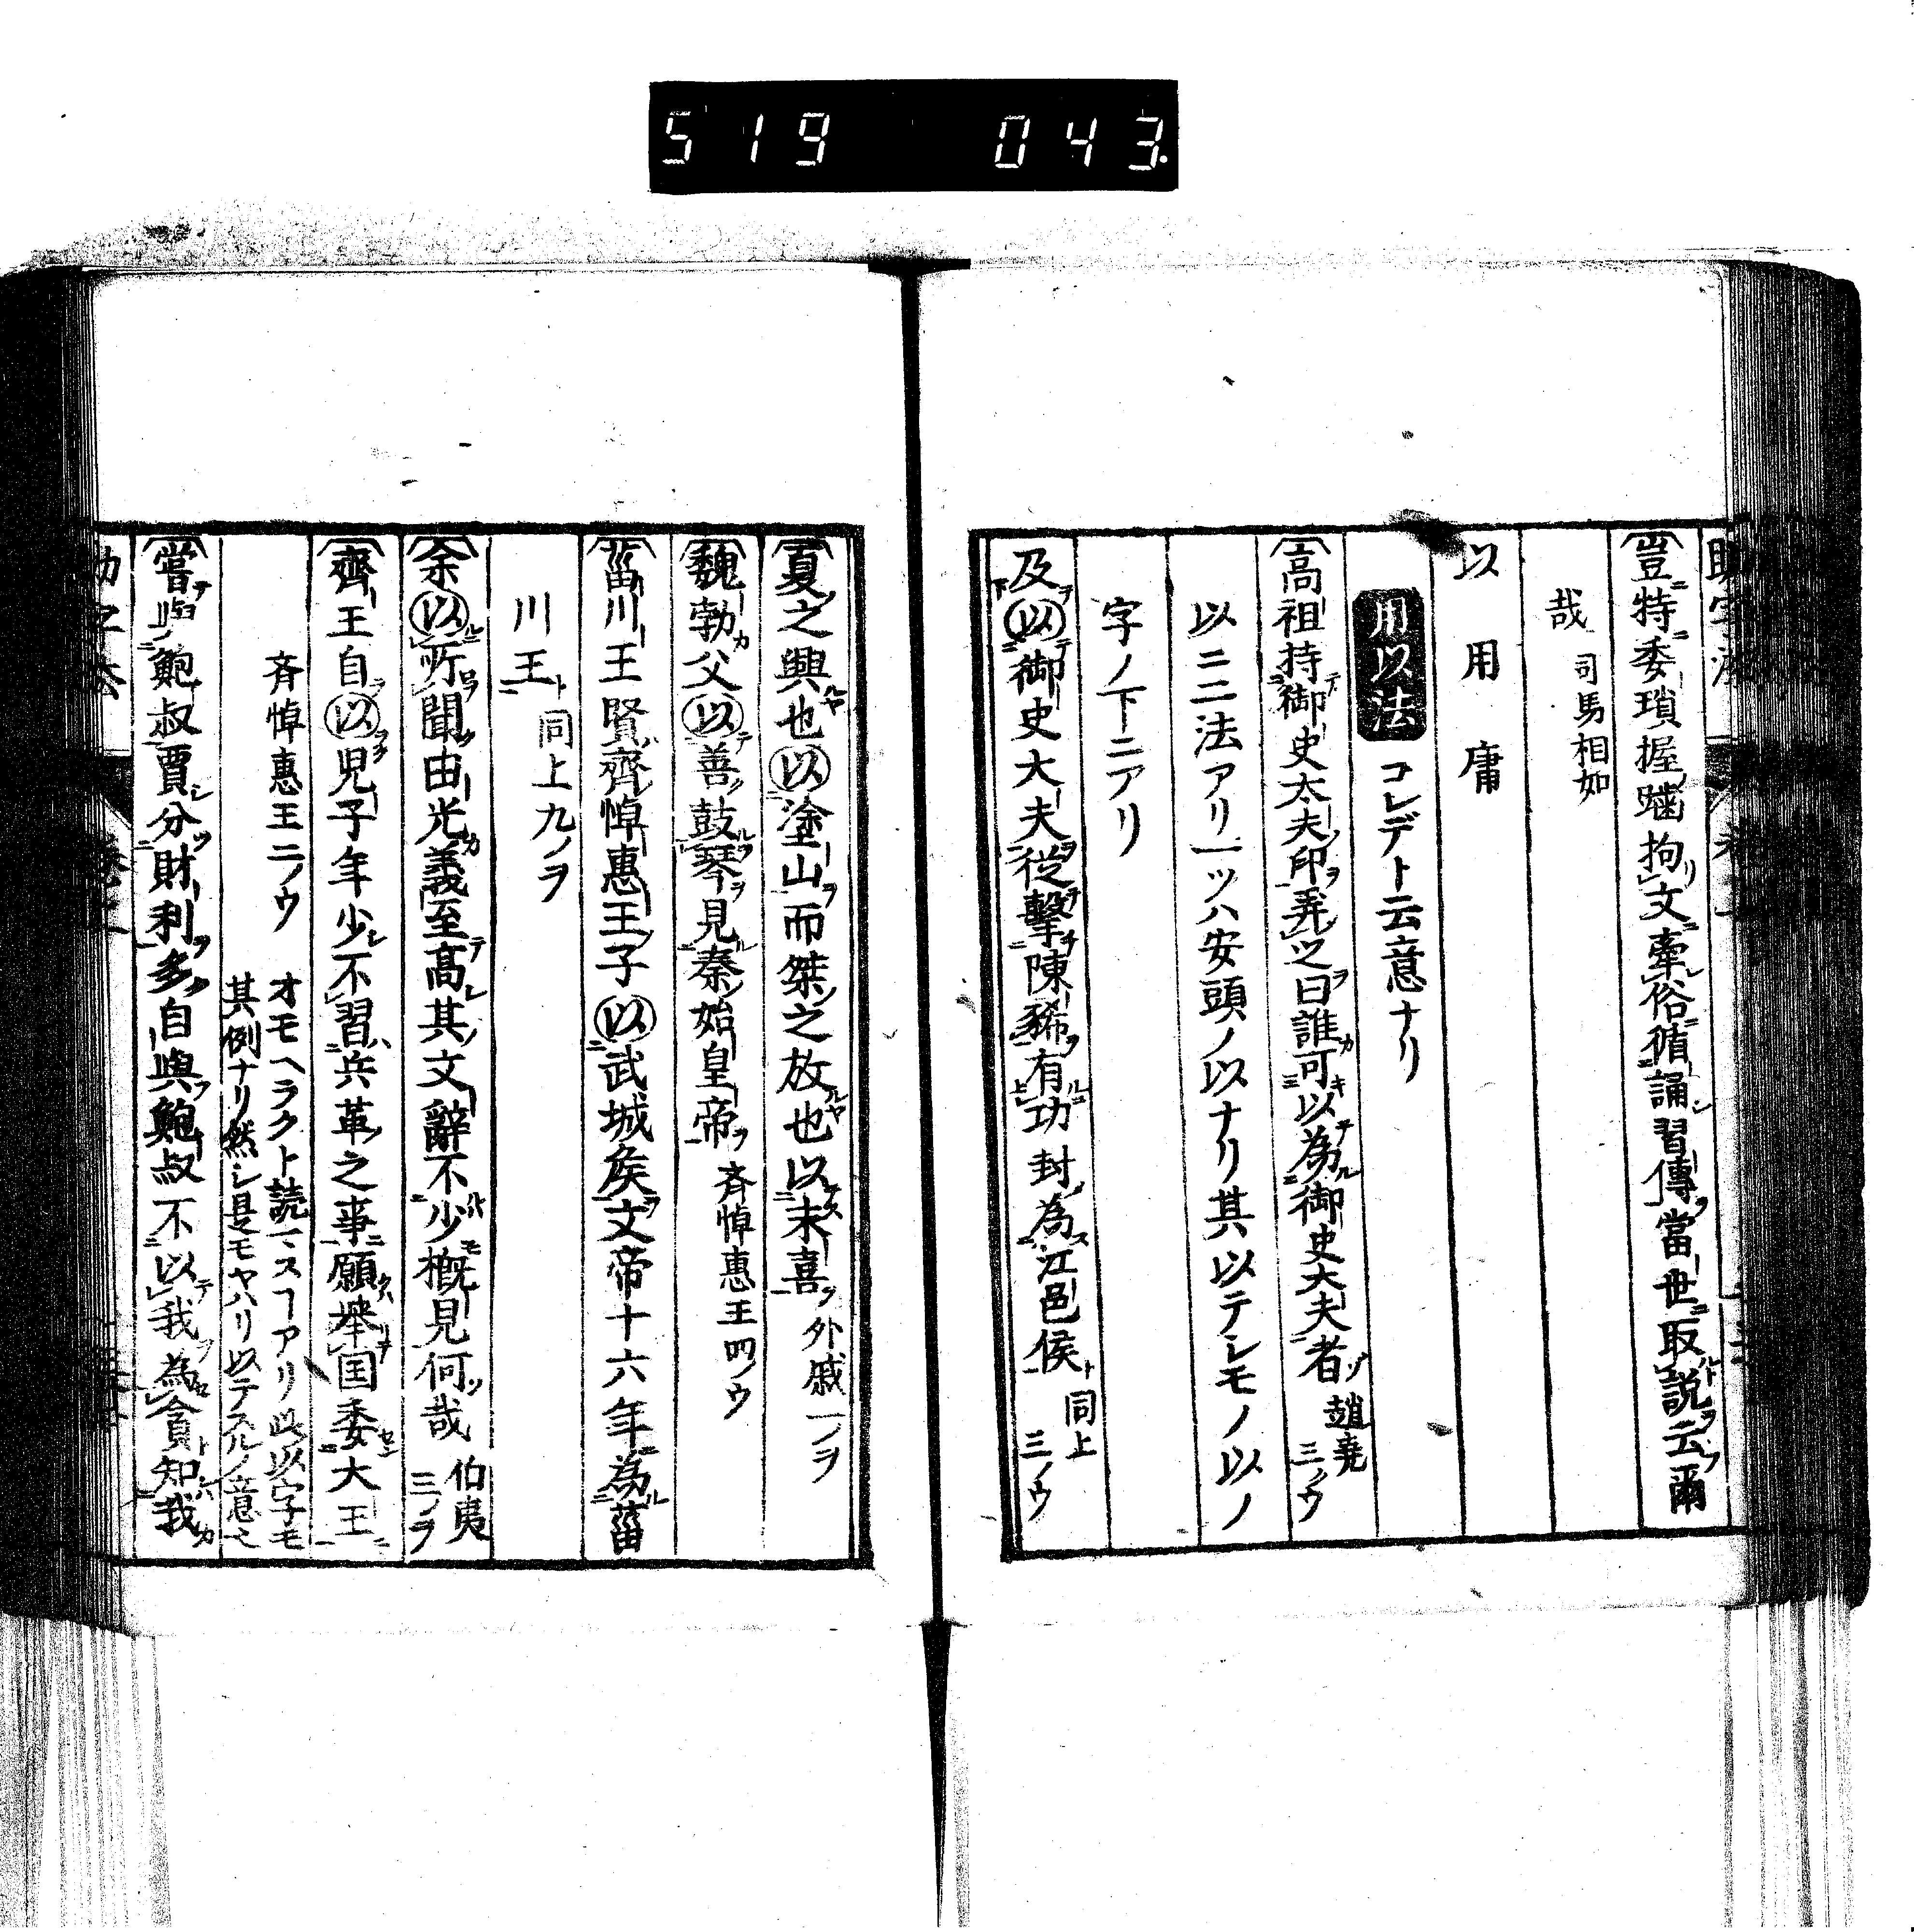 519 043.
豈特委瑣握齱拘文牽俗循誦習傳當世取説云爾
哉 司馬相如
以 用 庸
用以法 コレデト云意ナリ
高祖持御史太夫印弄之曰誰可以為御史大夫者 趙堯 三ノウ
以ニ二法アリ一ツハ安頭ノ以ナリ其以テレモノ以ノ
字ノ下ニアリ
及以御史大夫従擊陳豨有功封為江邑侯 同上 三ノウ
夏之興也以塗山而桀之放也以末喜 外戚一ノヲ
魏勃父以善鼓琴見秦始皇帝 斉悼惠王四ノウ
菑川王賢齊悼惠王子以武城矦文帝十六年為菑
川王 同上九ノヲ
余以所聞由光義至髙其文辭不少概見何哉 伯夷 三ノヲ
齊王自以児子年少不習兵革之事願舉国委大王
斉悼惠王二ノウ オモヘラクト読マスヿアリ此以字モ
其例ナリ然シ是モヤハリ以テスルノ意也
嘗與鮑叔賈分財利多自與鮑叔不以我為貪知我